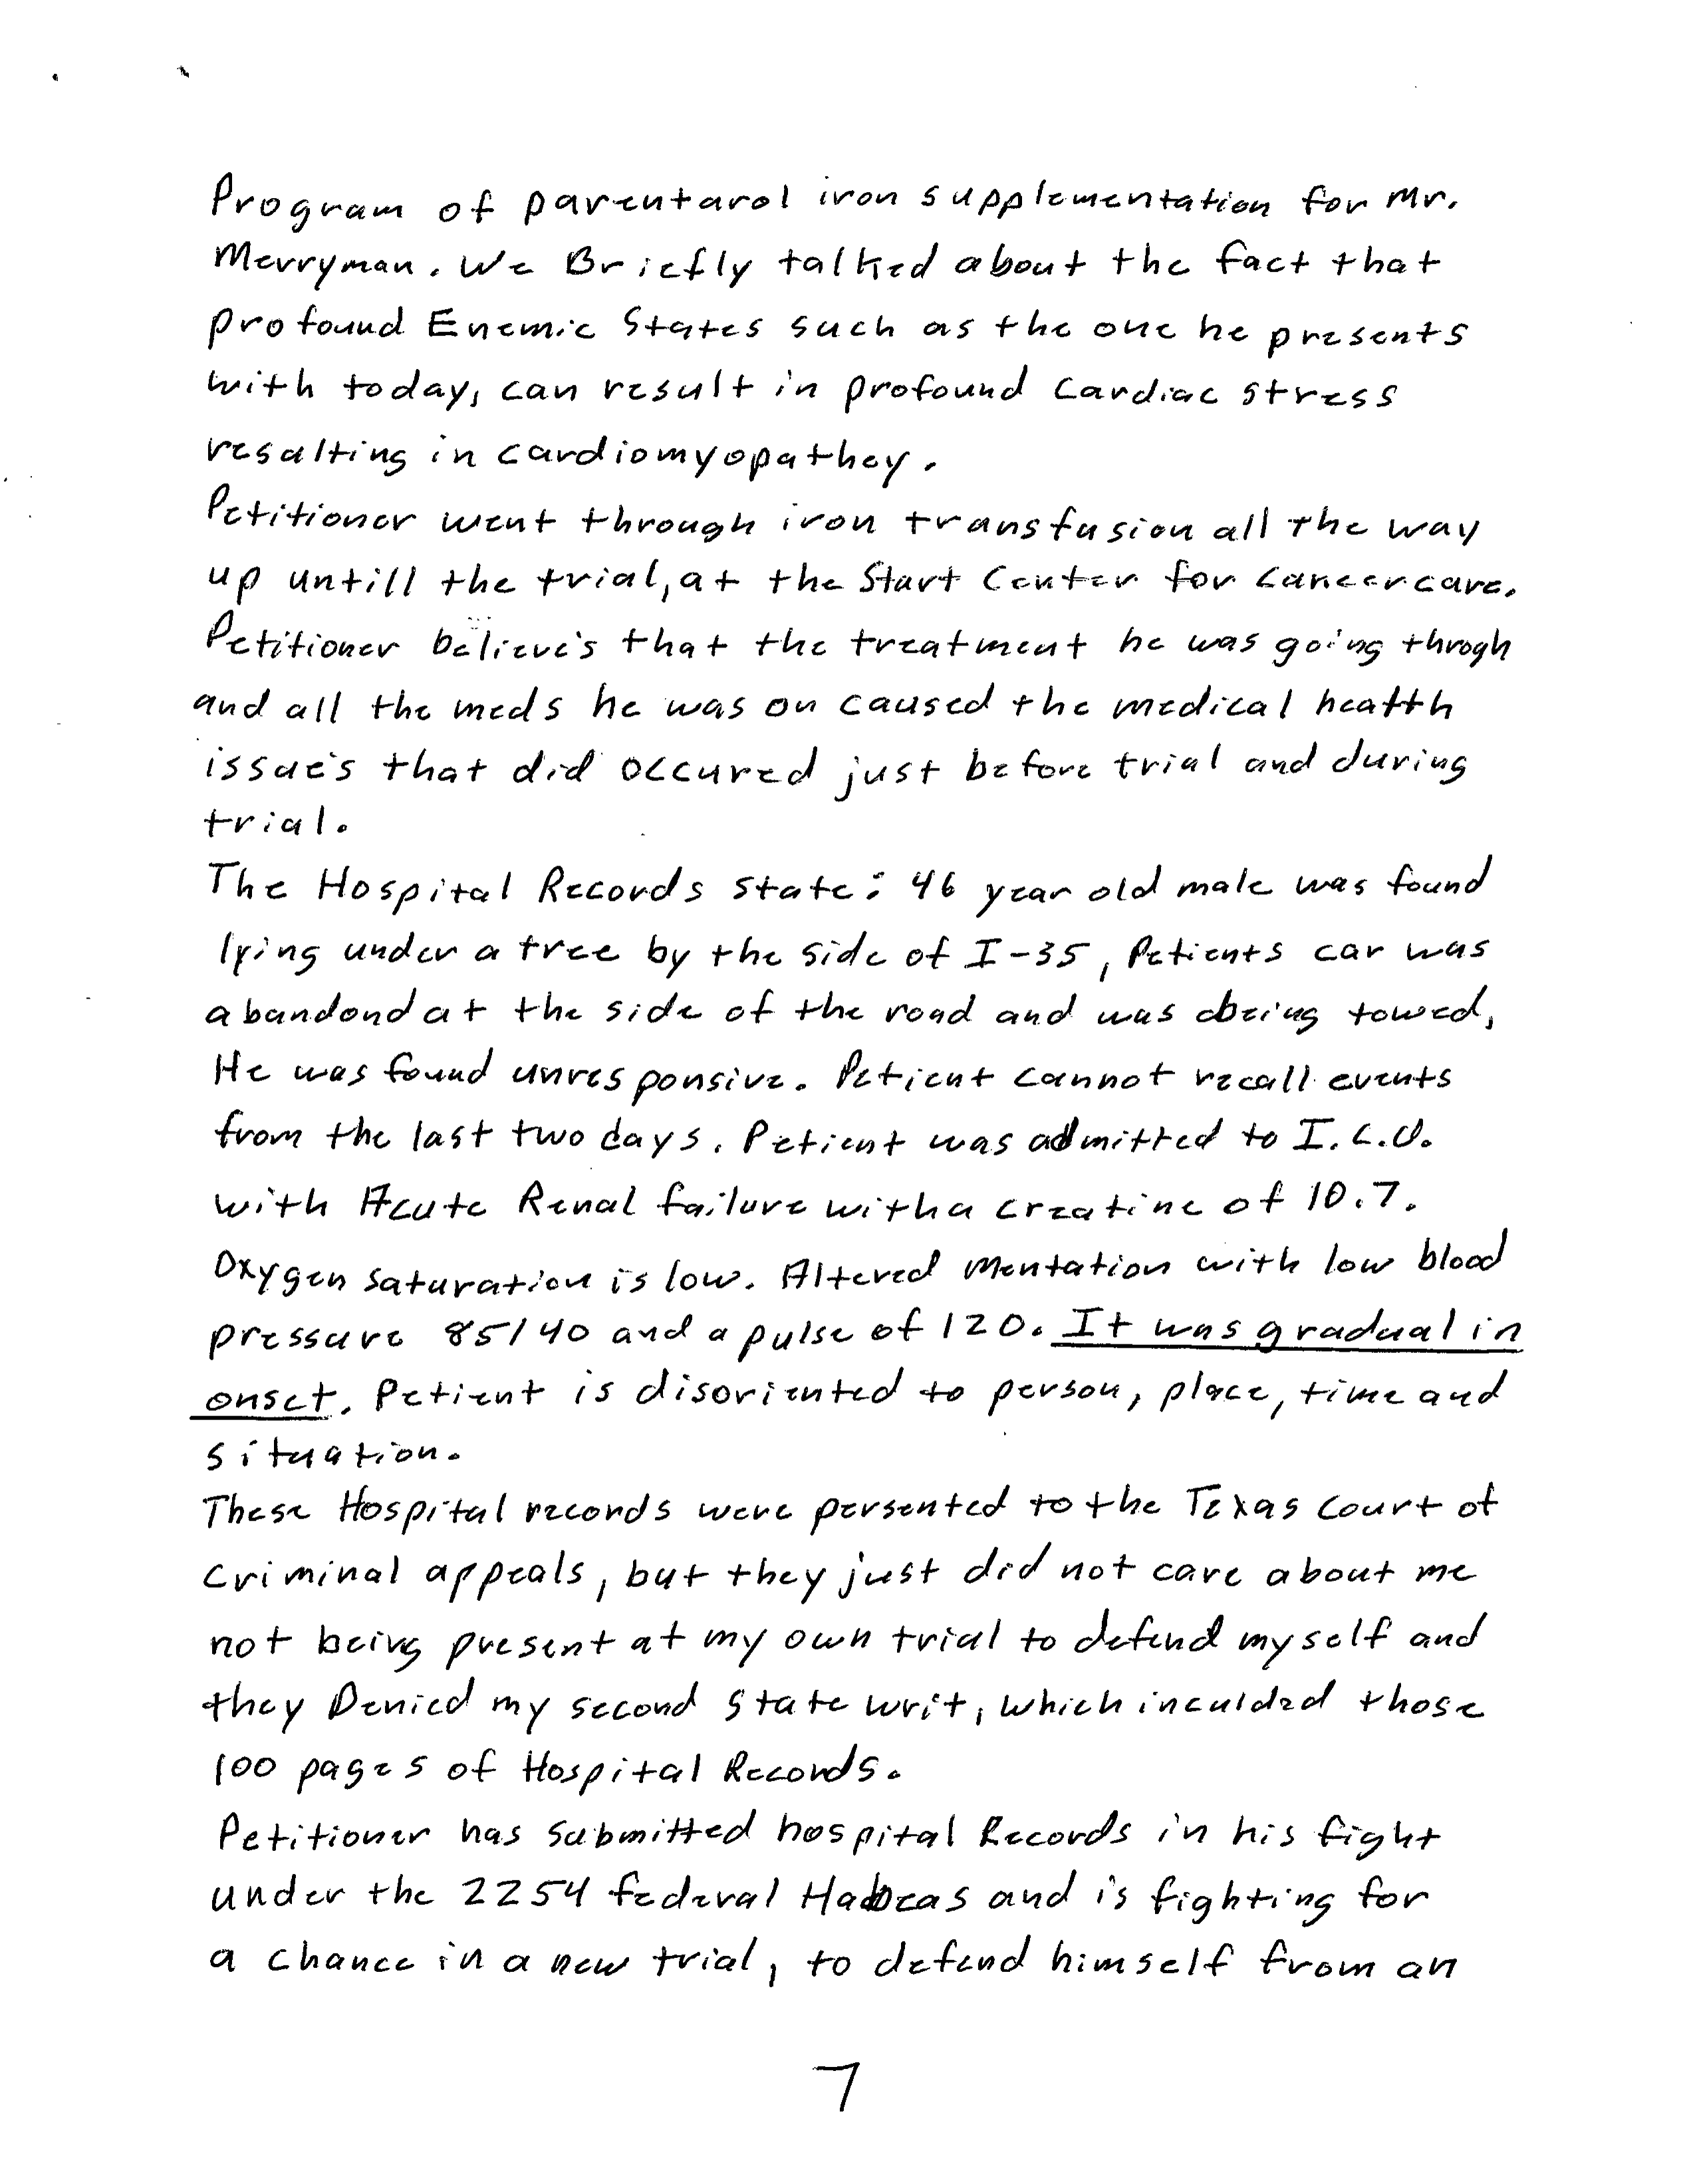 Program of parentarol iron supplementation for Mr.
Merryman. We Briefly talked about the fact that
profound Enemic States such as the one he presents
with today, can result in profound cardiac stress
resalting in cardiomyopathey.
Petitioner went through iron transfusion all the way
up untill the trial, at the Start Center for cancercare.
Petitioner believe's that the treatment he was going throgh
and all the meds he was on caused the medical heatth
issue's that did occured just before trial and during
trial.
The Hospital Records state: 46 year old male was found
lying under a tree by the side of I-35, Petients car was
abandond at the side of the road and was being towed,
He was found unresponsive. Petient cannot recall events
from the last two days. Petient was admitted to I.C.U.
with Acute Renal failure with a creatine of 10.7.
Oxygen saturation is low. Altered mentation with low blood
pressure 85/40 and a pulse of 120. It was gradual in
onset. Petient is disoriented to person, place, time and
situation.
These Hospital records were persented to the Texas Court of
criminal appeals, but they just did not care about me
not being present at my own trial to defend myself and
they Denied my second state writ, which inculded those
100 pages of Hospital Records.
Petitioner has submitted hospital Records in his fight
under the 2254 federal Habeas and is fighting for
a chance in a new trial, to defend himself from an
7